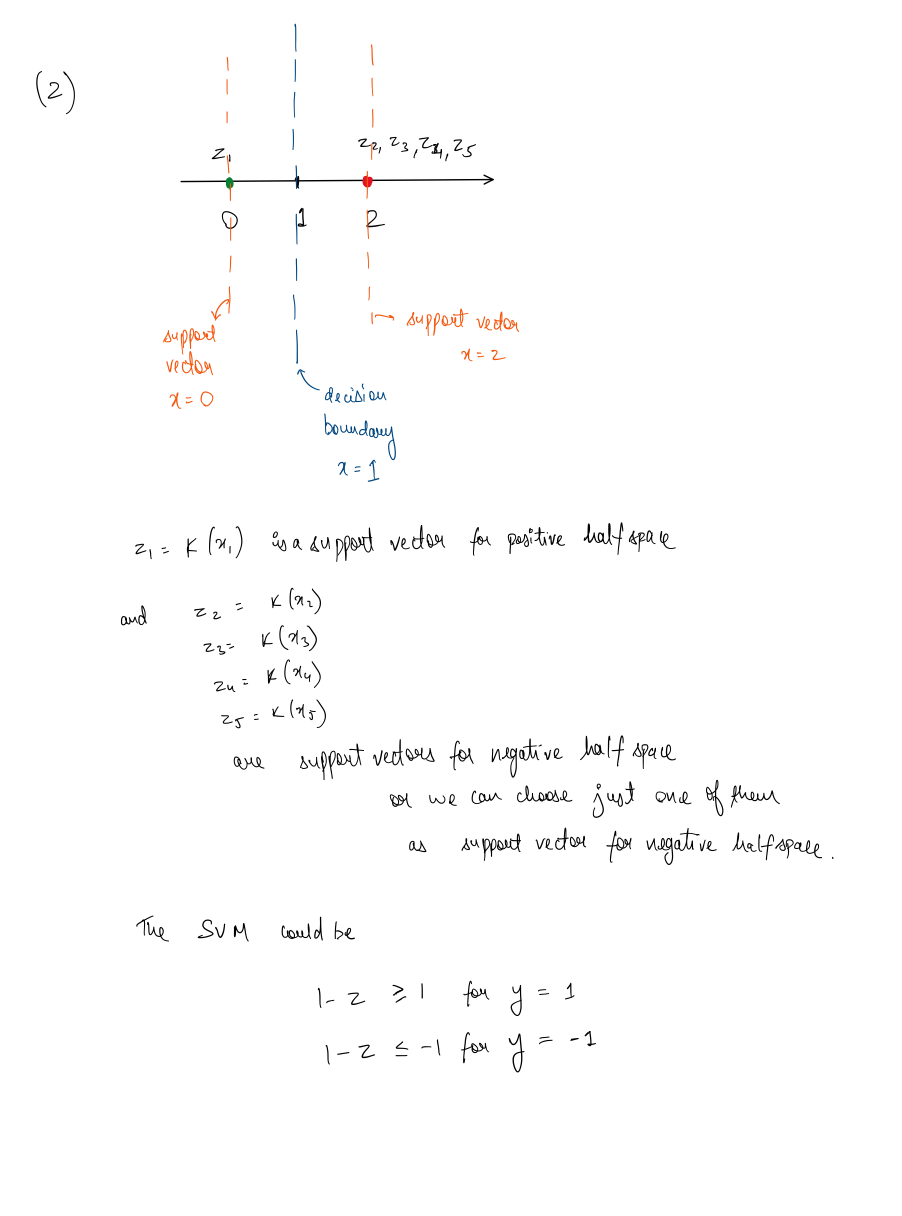 (2)
z1 z2, z3, z4, z5
0 1 2
support vector x = 0
support vector
x = 2
decision
boundary
x = 1
z1 = K(x1) is a support vector for positive halfspace
and z2 = K(x2)
z3 = K(x3)
z4 = K(x4)
z5 = K(x5)
are support vectors for negative half space
or we can choose just one of them
as support vector for negative halfspace.
The SVM could be
1 - z ≥ 1 for y = 1
1 - z ≤ -1 for y = -1